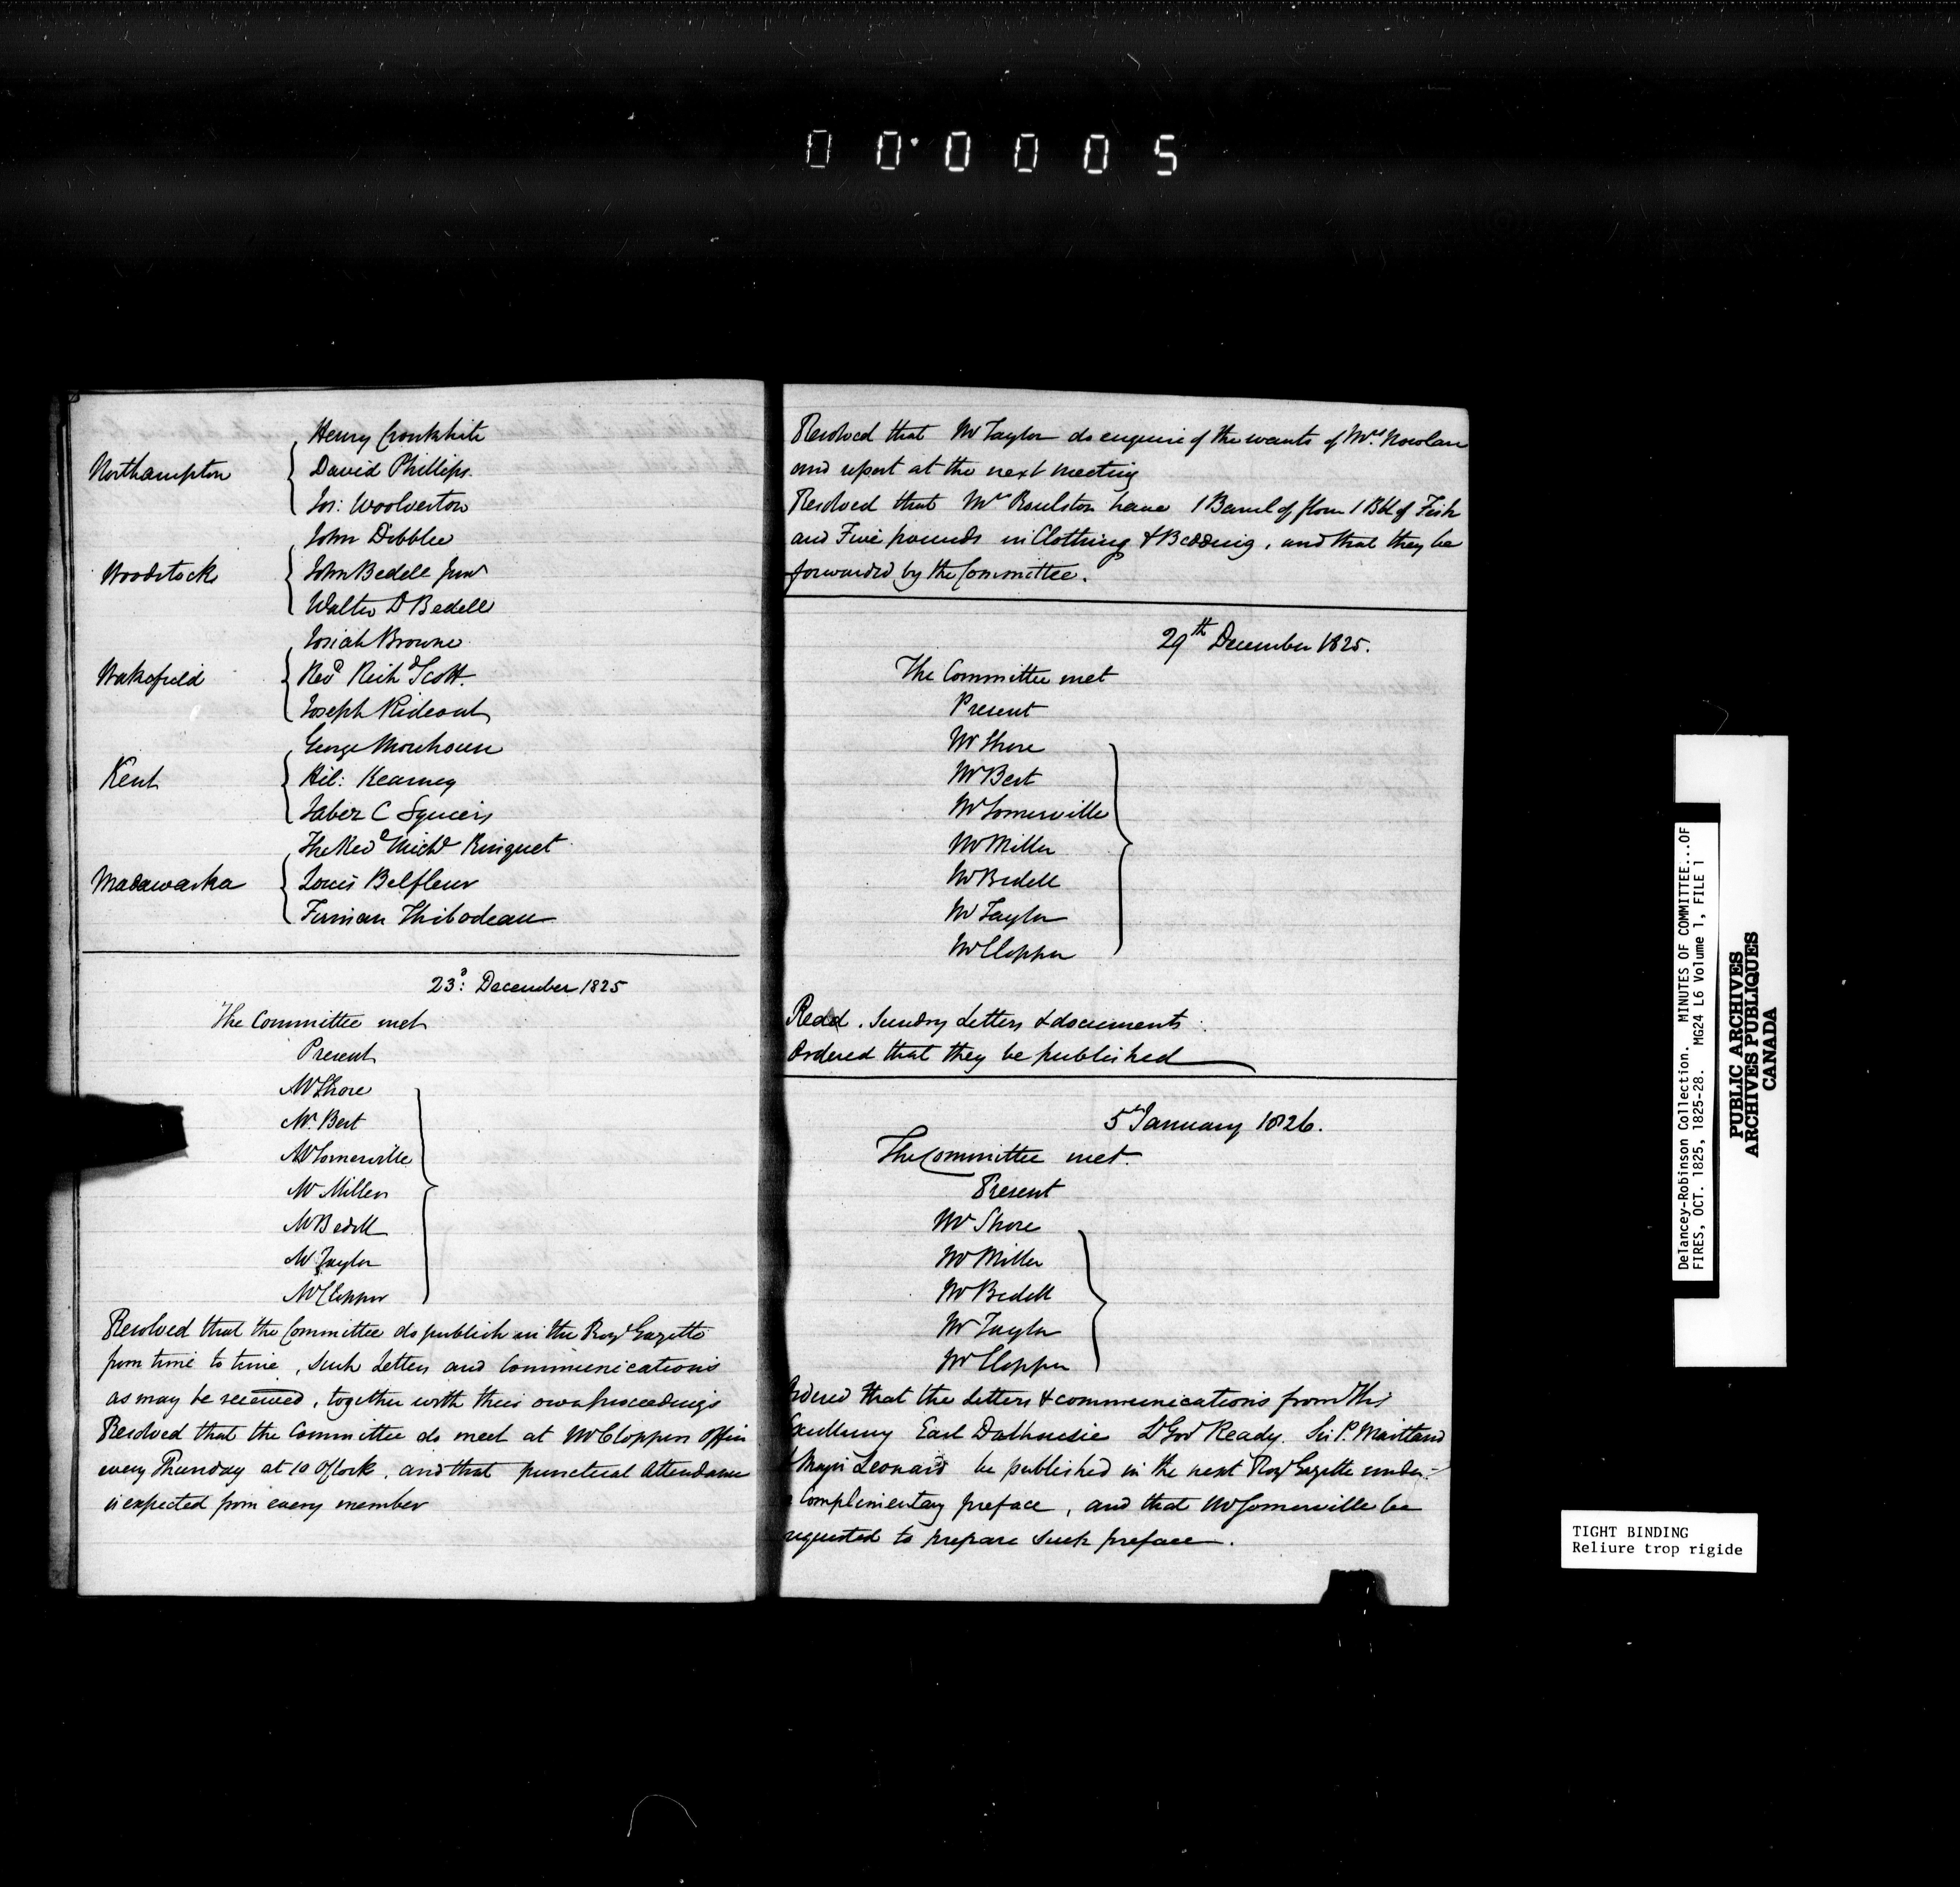 000005
Henry Cronkhite
Northampton David Phillips.
Jos: Woolverton
John Dibblee
Woodstock John Bedell Junr
Walter D Bedell
Josiah Browne
Wakefield Revd Richd Scott.
Joseph Rideout
George Morehouse
Kent Hil: Kearney
Jabez C Squiers
The Revd Michl Ringuet
Madawaska Louis Belfleur
Firmian Thibodeau
23d: December 1825
The Committee met
Present
Mr Shore
Mr. Best
Mr Somerville
Mr Miller
Mr Bedell
Mr Taylor
Mr Clopper
Resolved that the Committee do publish in the Royl Gazette
from time to time, such Letters and Communications
as may be received, together with their own proceedings
Resolved that the Committee do meet at Mr Cloppers Office
every Thursday at 10 OClock, and that punctual Attendance
is expected from every member
Resolved that Mr Taylor do enquire of the wants of Mrs. Nowlan
and report at the next meeting
Resolved that Mr Roulston have 1 Barrel of flour 1 Bbl of Fish
and Five pounds in Clothing & Bedding, and that they be
forwarded by the Committee.
29th December 1825.
The Committee met
Present
Mr Shore
Mr Best
Mr Somerville
Mr Miller
Mr Bedell
Mr Taylor
Mr Clopper
Read. Sundry Letters & documents
Ordered that they be published
5th January 1826.
The Committee met.
Present
Mr Shore
Mr Miller
Mr Bedell
Mr Taylor
Mr Clopper
Ordered that the Letters & communications from His
Excellency Earl Dalhousie Lt Govr Ready. Sir P. Maitland
& Major Leonard be published in the next Royl Gazette under
a Complimentary preface, and that Mr Somerville be
requested to prepare such preface.
Delancey-Robinson Collection. MINUTES OF COMMITTEE...OF
FIRES, OCT. 1825, 1825-28. MG24 L6 Volume 1, FILE 1
PUBLIC ARCHIVES
ARCHIVES PUBLIQUES
CANADA
TIGHT BINDING
Reliure trop rigide